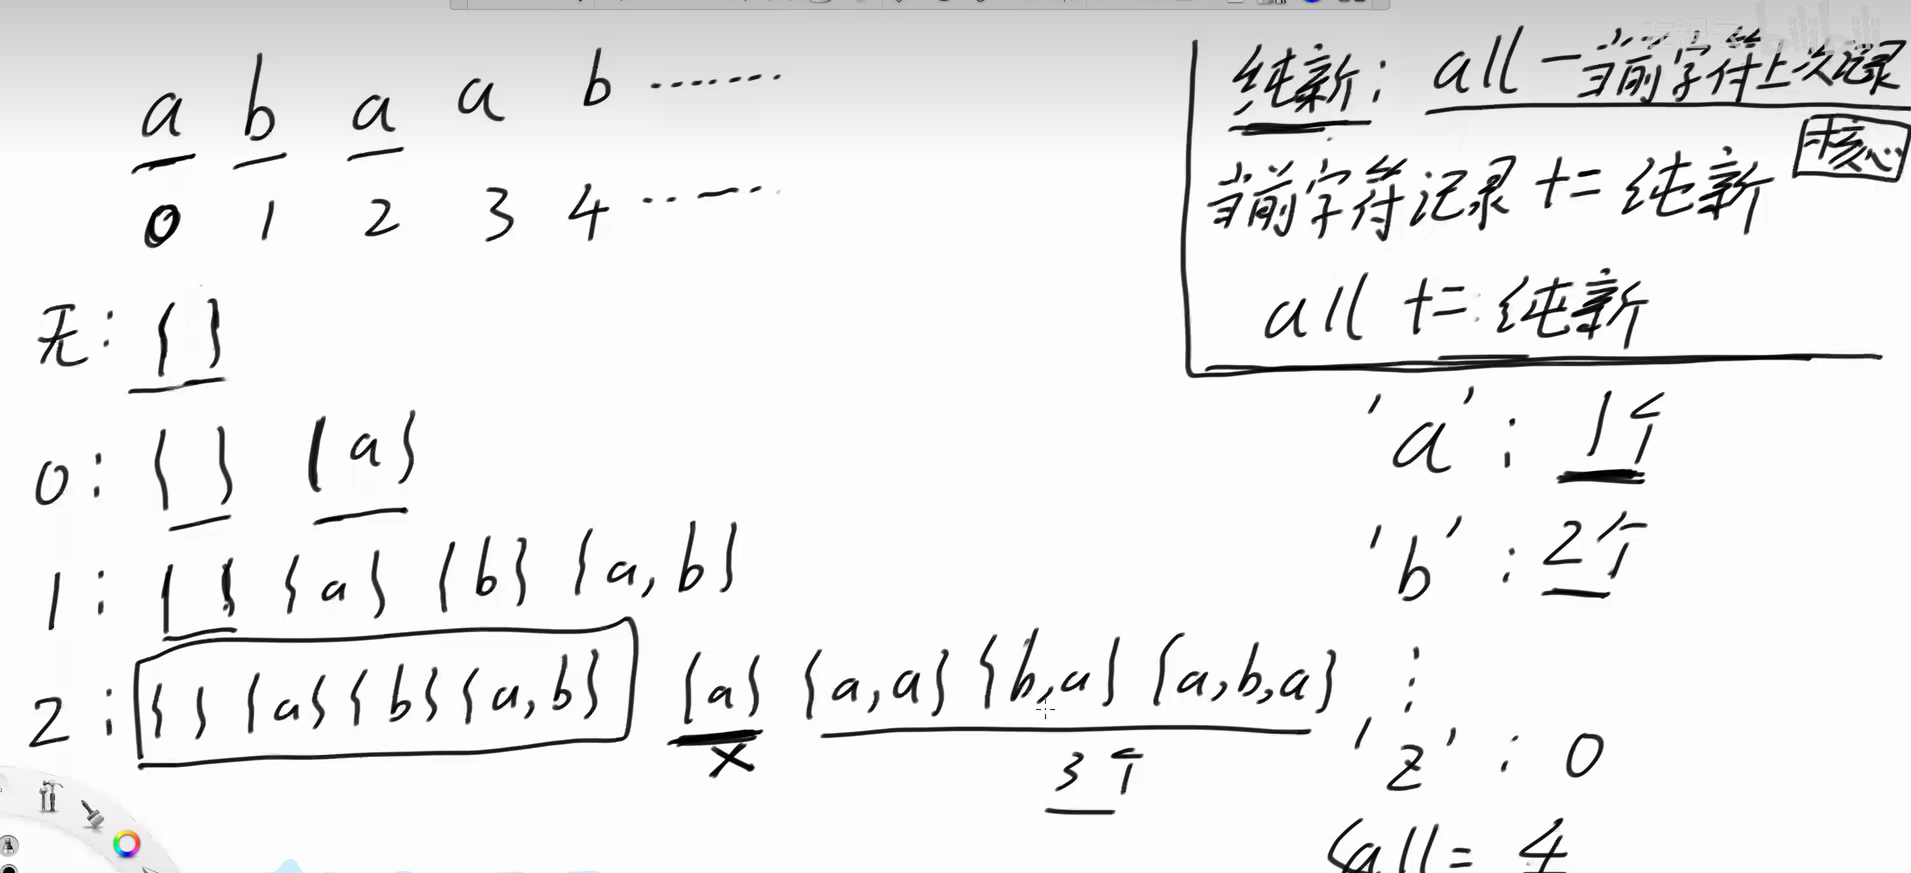 a b a a b ·······
0 1 2 3 4 ·······
无: { }
0: { } {a}
1: { } {a} {b} {a,b}
2: { } {a} {b} {a,b} {a} {a,a} {b,a} {a,b,a}
×
3个
纯新: all - 当前字符上次记录
核心
当前字符记录 += 纯新
all += 纯新
'a': 1个
'b': 2个
⋮
'z': 0
all = 4